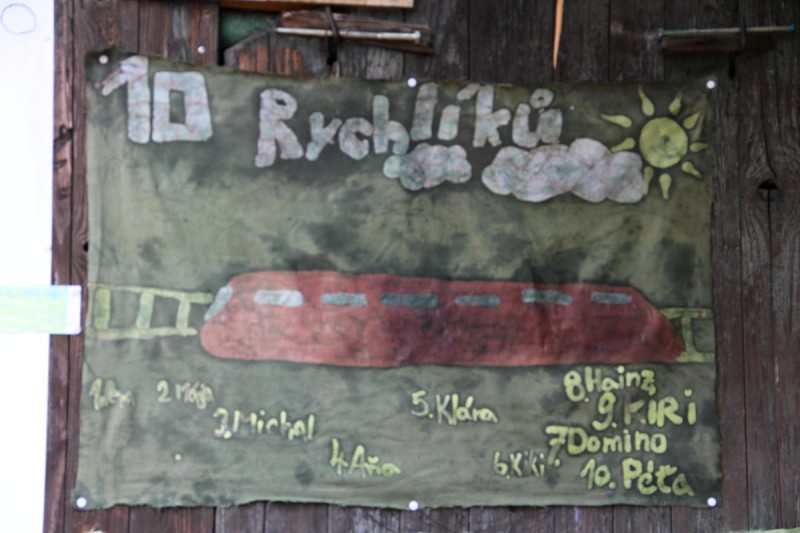 10 Rychlíků
2 Mája
3. Michal
4. Aňa
5. Klára
6. Kiki
7 Domino
8. Hainz
9. KIRI
10. Péťa